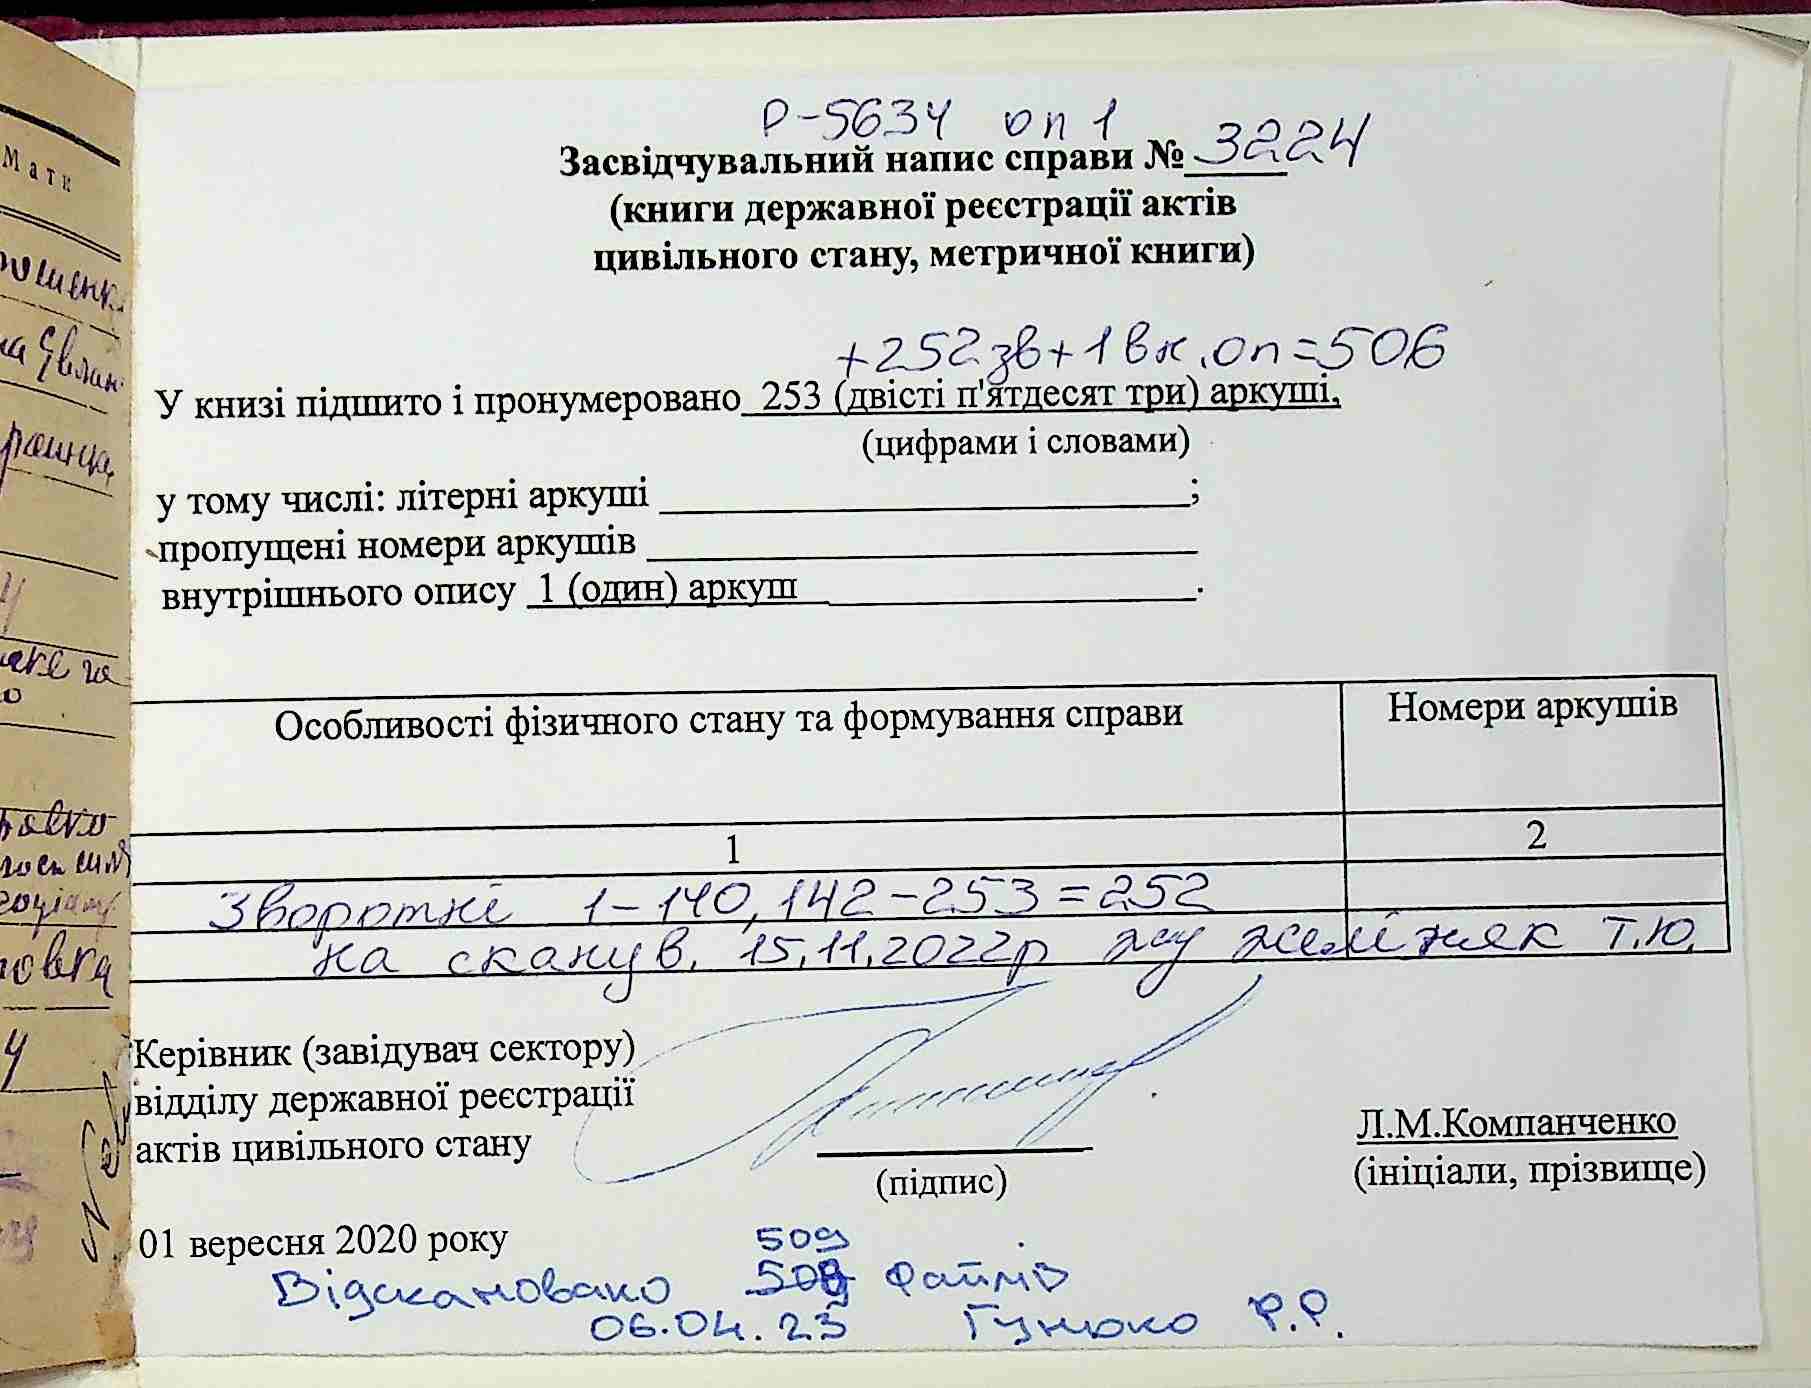 Матк
Р-5634 оп 1
Засвідчувальний напис справи № 3224
(книги державної реєстрації актів
цивільного стану, метричної книги)
+252 зв+1 вн.оп=506
У книзі підшито і пронумеровано 253 (двісті п'ятдесят три) аркуші,
(цифрами і словами)
у тому числі: літерні аркуші ;
пропущені номери аркушів
внутрішнього опису 1 (один) аркуш .
Особливості фізичного стану та формування справи Номери аркушів
1 2
Зворотні 1-140, 142-253=252
на скану в. 15.11.2022р Т.Ю.
Керівник (завідувач сектору)
відділу державної реєстрації
актів цивільного стану
Л.М.Компанченко
(підпис) (ініціали, прізвище)
01 вересня 2020 року
509
Відскановано файлів
06.04.23 Гунько Р.Р.